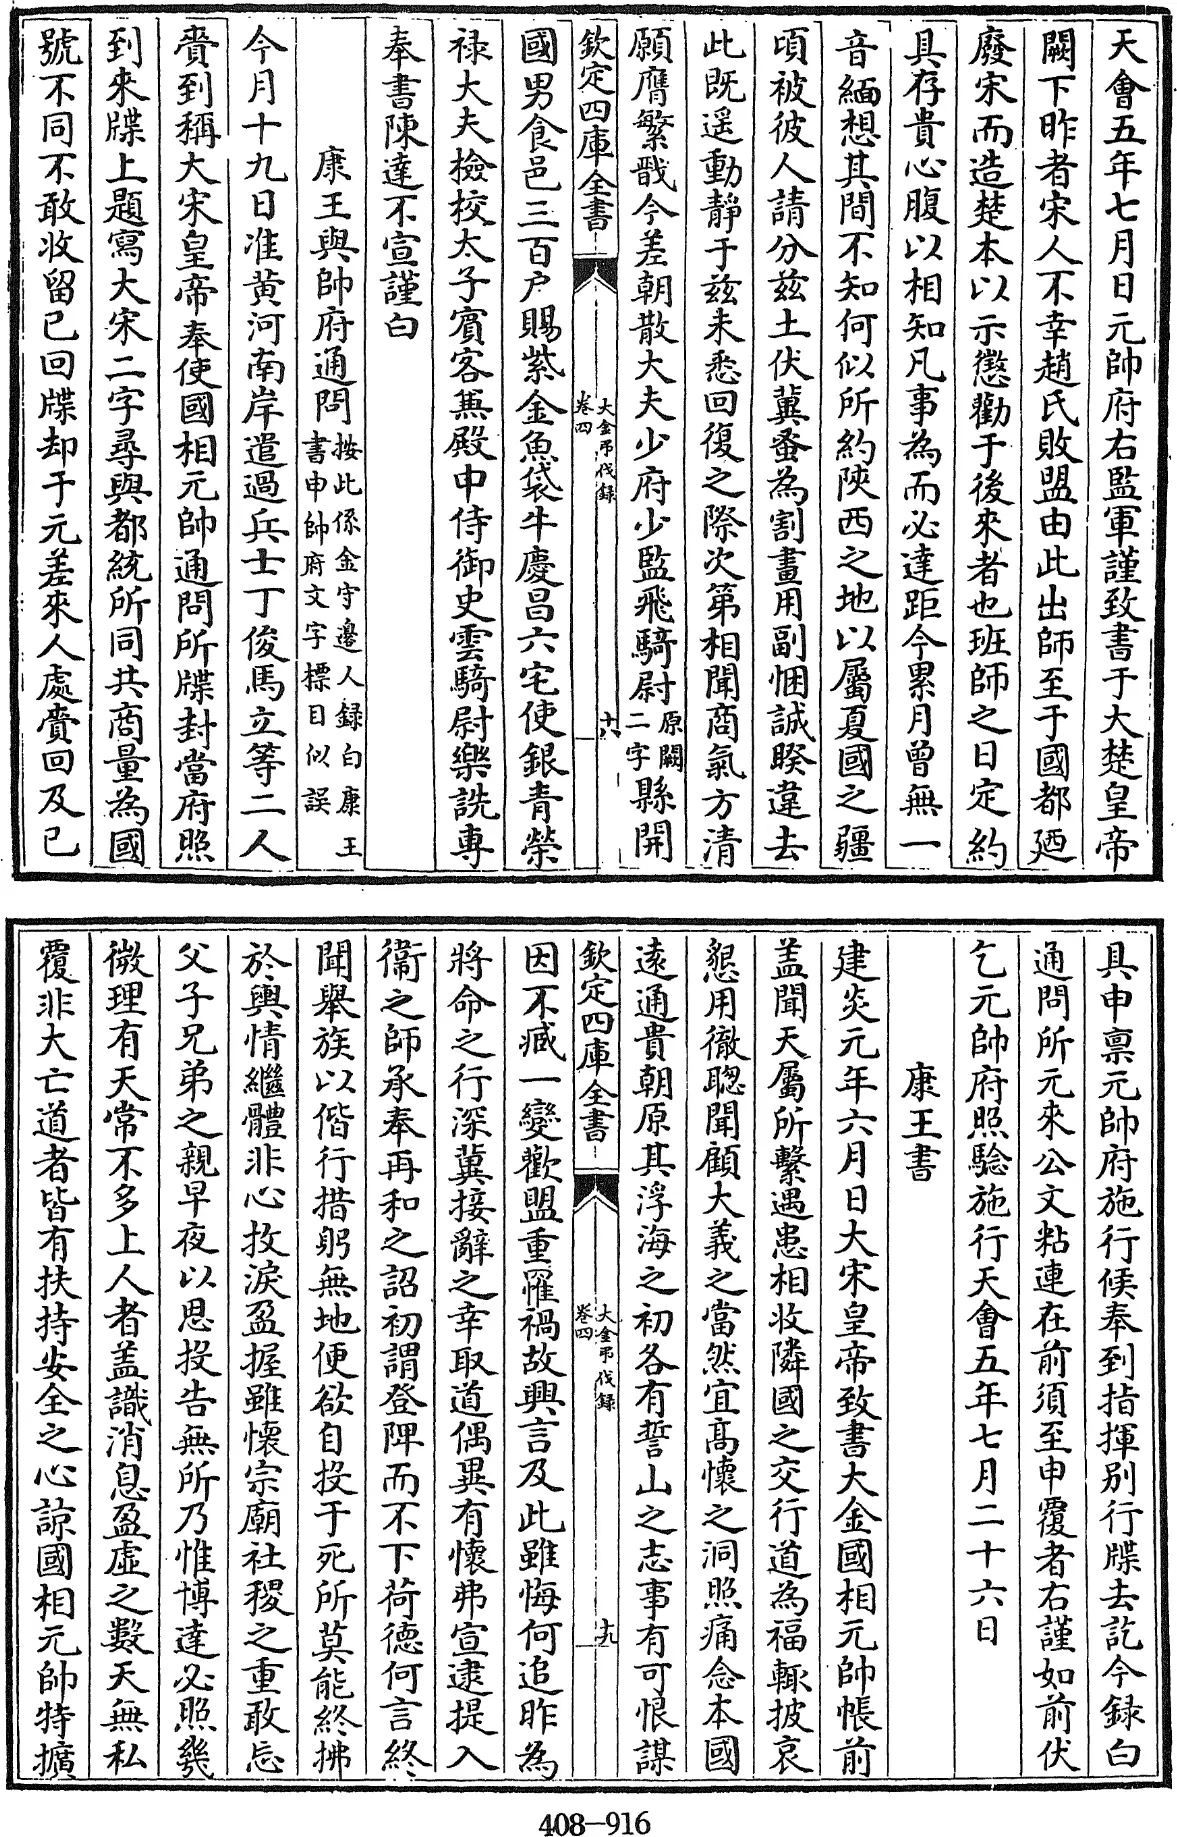 天會五年七月日元帥府右監軍謹致書于大楚皇帝
闕下昨者宋人不幸趙氏敗盟由此出師至于國都廼
廢宋而造楚本以示懲勸于後來者也班師之日定約
具存貴心腹以相知凡事為而必達距今累月曾無一
音緬想其間不知何似所約陝西之地以屬夏國之疆
頃被彼人請分兹土伏冀蚤為割畫用副悃誠睽違去
此既遥動靜于兹未悉回復之際次第相聞商氣方清
願膺繁戩今差朝散大夫少府少監飛騎尉原闕二字縣開
欽定四庫全書
大金弔伐録
卷四
十八
國男食邑三百户賜紫金魚袋牛慶昌六宅使銀青榮
禄大夫檢校太子賓客兼殿中侍御史雲騎尉樂詵専
奉書陳達不宣謹白
康王與帥府通問按此係金守邊人録白康王書申帥府文字標目似誤
今月十九日准黄河南岸遣過兵士丁俊馬立等二人
賫到稱大宋皇帝奉使國相元帥通問所牒封當府照
到來牒上題寫大宋二字尋與都統所同共商量為國
號不同不敢收留已回牒却于元差來人處賫回及已
具申禀元帥府施行候奉到指揮别行牒去訖今録白
通問所元來公文粘連在前須至申覆者右謹如前伏
乞元帥府照驗施行天會五年七月二十六日
康王書
建炎元年六月日大宋皇帝致書大金國相元帥帳前
盖聞天屬所繫遇患相收隣國之交行道為福輒披哀
懇用徹聰聞顧大義之當然宜髙懷之洞照痛念本國
逺通貴朝原其浮海之初各有誓山之志事有可恨謀
欽定四庫全書
大金弔伐録
卷四
十九
因不臧一變歡盟重罹禍故興言及此雖悔何追昨為
將命之行深冀接辭之幸取道偶異有懷弗宣逮提入
衞之師承奉再和之詔初謂登陴而不下荷德何言終
聞舉族以偕行措躬無地便欲自投于死所莫能終拂
於輿情繼體非心抆淚盈握雖懷宗廟社稷之重敢忘
父子兄弟之親早夜以思投告無所乃惟博達必照幾
微理有天常不多上人者盖識消息盈虚之數天無私
覆非大亡道者皆有扶持安全之心諒國相元帥特擴
408-916